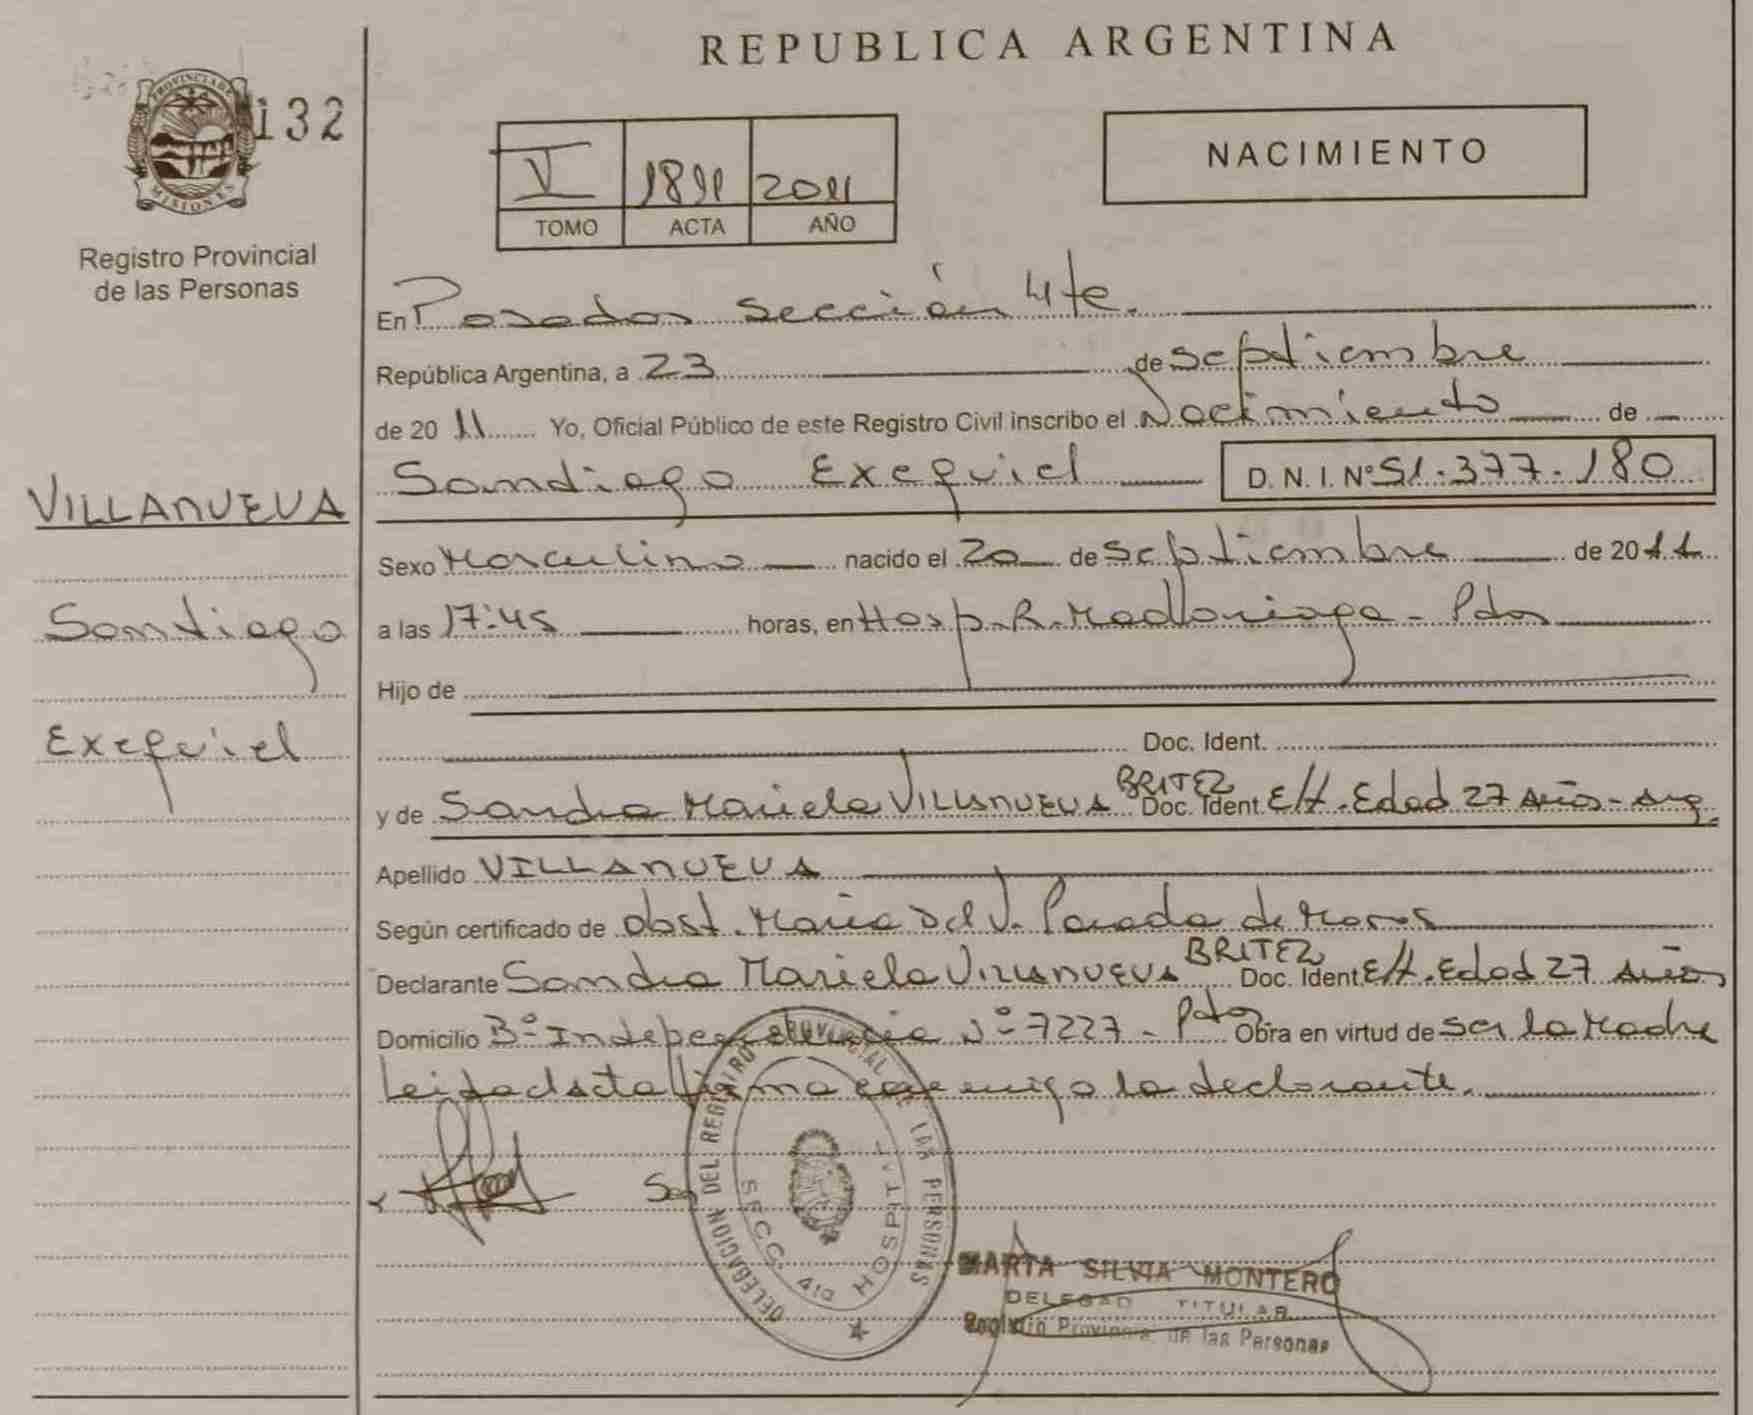 REPUBLICA ARGENTINA
PROVINCIA DE
MISIONES
132
Registro Provincial
de las Personas
V 1891 2011
TOMO ACTA AÑO
NACIMIENTO
En Posadas Sección 4te.
República Argentina, a 23 de Septiembre
de 20 11 Yo, Oficial Público de este Registro Civil inscribo el Nacimiento de
Santiago Exequiel D. N. I. Nº 51.377.180
VILLANUEVA
Santiago
Exequiel
Sexo Masculino nacido el 20 de Septiembre de 20 11
a las 17:45 horas, en Hosp. R. Madariaga - Pdas
Hijo de
Doc. Ident.
y de Sandra Mariela VILLANUEVA BRITEZ Doc. Ident. E/t. Edad 27 Años - Arg.
Apellido VILLANUEVA
Según certificado de obst. Maria Del V. Parada de
Declarante Sandra Mariela VILLANUEVA BRITEZ Doc. Ident E/t. Edad 27 Años
Domicilio Bº Independencia Nº 7227 - Pdas Obra en virtud de ser la Madre
Leida el acta firma conmigo la declarante.
DELEGACION DEL REGISTRO PROVINCIAL DE LAS PERSONAS
SECC. 4ta HOSPITAL
MARTA SILVIA MONTERO
DELEGAD TITULAR
Registro Provincial de las Personas